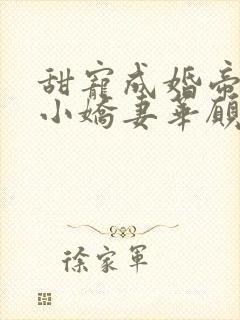 甜寵成婚帝
小嬌妻華顧
徐家軍